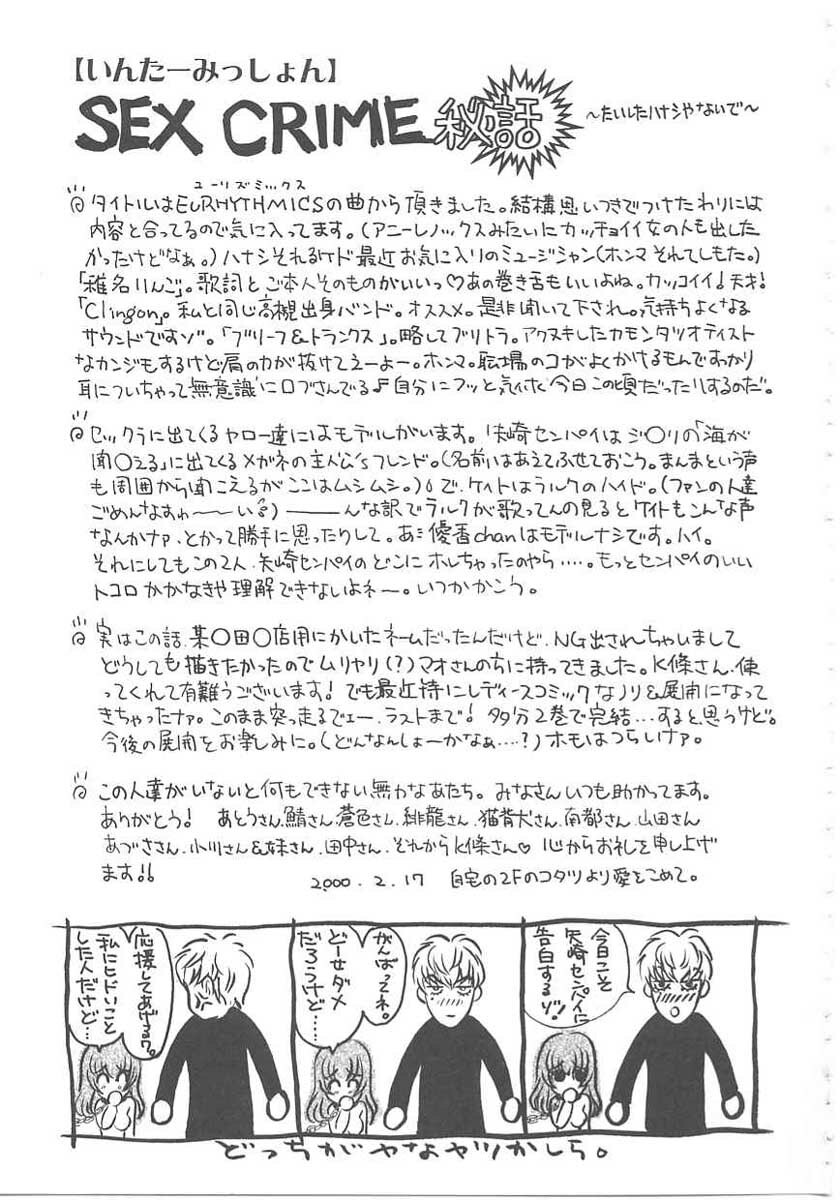 【いんたーみっしょん】
SEX CRIME 秘話 〜たいしたハナシやないで〜
ユーリズミックス
タイトルはEURHYTHMICSの曲から頂きました。結構思いつきでつけたわりには
内容と合ってるので気に入ってます。(アニーレノックスみたいにカッチョイイ女の人も出した
かったけどなぁ。)ハナシそれるケド最近お気に入りのミュージシャン(ホンマそれてしもた。)
「椎名りんご」。歌詞とご本人そのものがいいっ♡あの巻き舌もいいよね。カッコイイ!天才!
「Clingon」。私と同じ高槻出身バンド。オススメ。是非聞いて下され。気持ちよくなる
サウンドですゾ。「ブリーフ&トランクス」。略してブリトラ。アクヌキしたカモンタツオテイスト
なカンジもするけど肩の力が抜けてえーよー。ホンマ。職場のコがよくかけるもんですっかり
耳についちゃって無意識に口ずさんでる♪自分にフッと気付く今日この頃だったりするのだ。
セックラに出てくるヤロー達にはモデルがいます。矢崎センパイはジ〇リの「海が
聞〇える」に出てくるメガネの主人公'sフレンド。(名前はあえてふせておこう。まんまという声
も周囲から聞こえるがここはムシムシ。)で、ケイトはラルクのハイド。(ファンの人達
ごめんなすわ〜〜い)―んな訳でラルクが歌ってんの見るとケイトもこんな声
なんかナァ、とかって勝手に思ったりして。あ、優香chanはモデルナシです。ハイ。
それにしてもこの2人、矢崎センパイのどこにホレちゃったのやら……。もっとセンパイのいい
トコロかかなきゃ理解できないよネー。いつかかこう。
実はこの話、某〇田〇店用にかいたネームだったんだけど、NG出されちゃいまして
どうしても描きたかったのでムリヤリ(?)マオさんのちに持ってきました。K條さん、使
ってくれて有難うございます!でも最近特にレディースコミックなノリ&展開になって
きちゃったナァ。このまま突っ走るでェー、ラストまで!多分2巻で完結…すると思うけど。
今後の展開をお楽しみに。(どんなんしょーかなぁ…?)ホモはつらいナァ。
この人達がいないと何もできない無力なあたち。みなさんいつも助かってます。
ありがとう! あとうさん、鯖さん、蒼色さん、緋龍さん、猫背犬さん、南都さん、山田さん
あづささん、小川さん&妹さん、田中さん、それからK條さん♡ 心からお礼を申し上げ
ます!!
2000.2.17 自宅の2Fのコタツより愛をこめて。
今日こそ
矢崎センパイに
告白するゾ!
がんばってネ。
どーせダメ
だろうけど…
応援してあげるワ。
私にヒドいこと
した人だけど…
どっちがヤなヤツかしら。